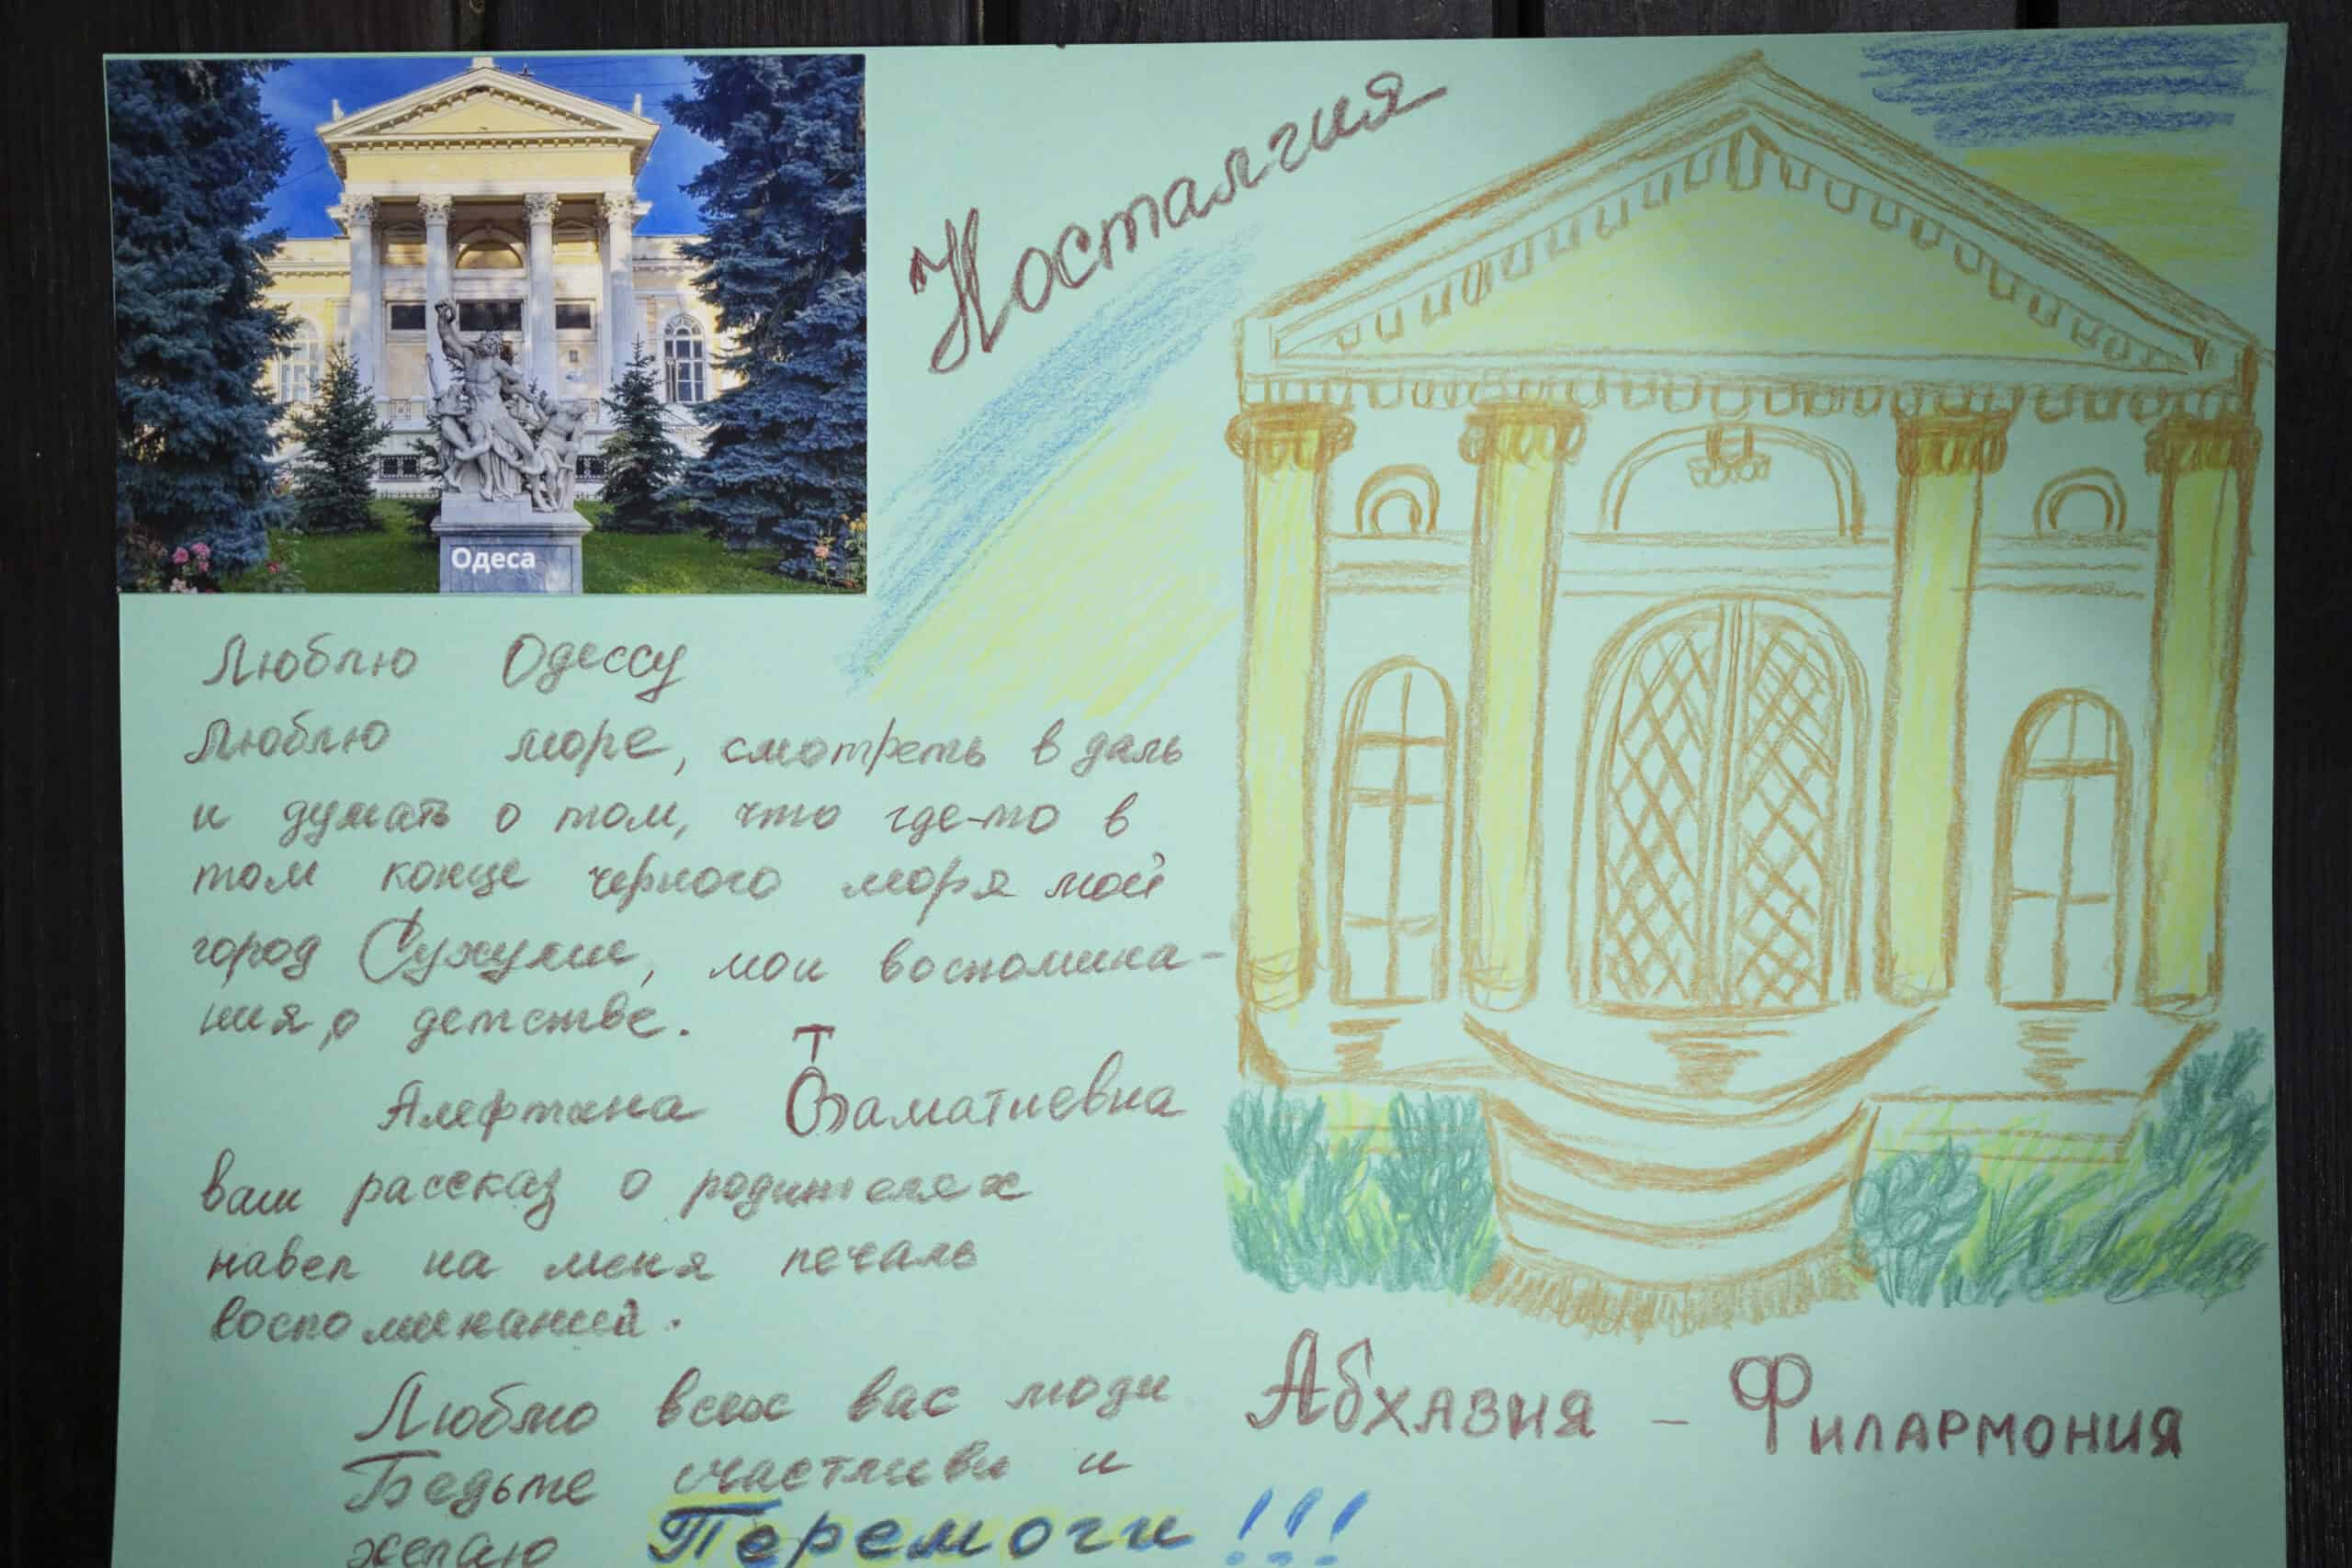 Одеса
Носталгия
Люблю Одессу
Люблю море, смотреть в даль
и думать о том, что где-то в
том конце черного моря мой
город Сухуми, мои воспомина-
ния о детстве.
Алефтина
ваш рассказ о родителях
навел на меня печаль
воспоминаний.
Люблю всех вас люди
Бедьте счастливы и
желаю Перемоги!!!
Абхазия - Филармония